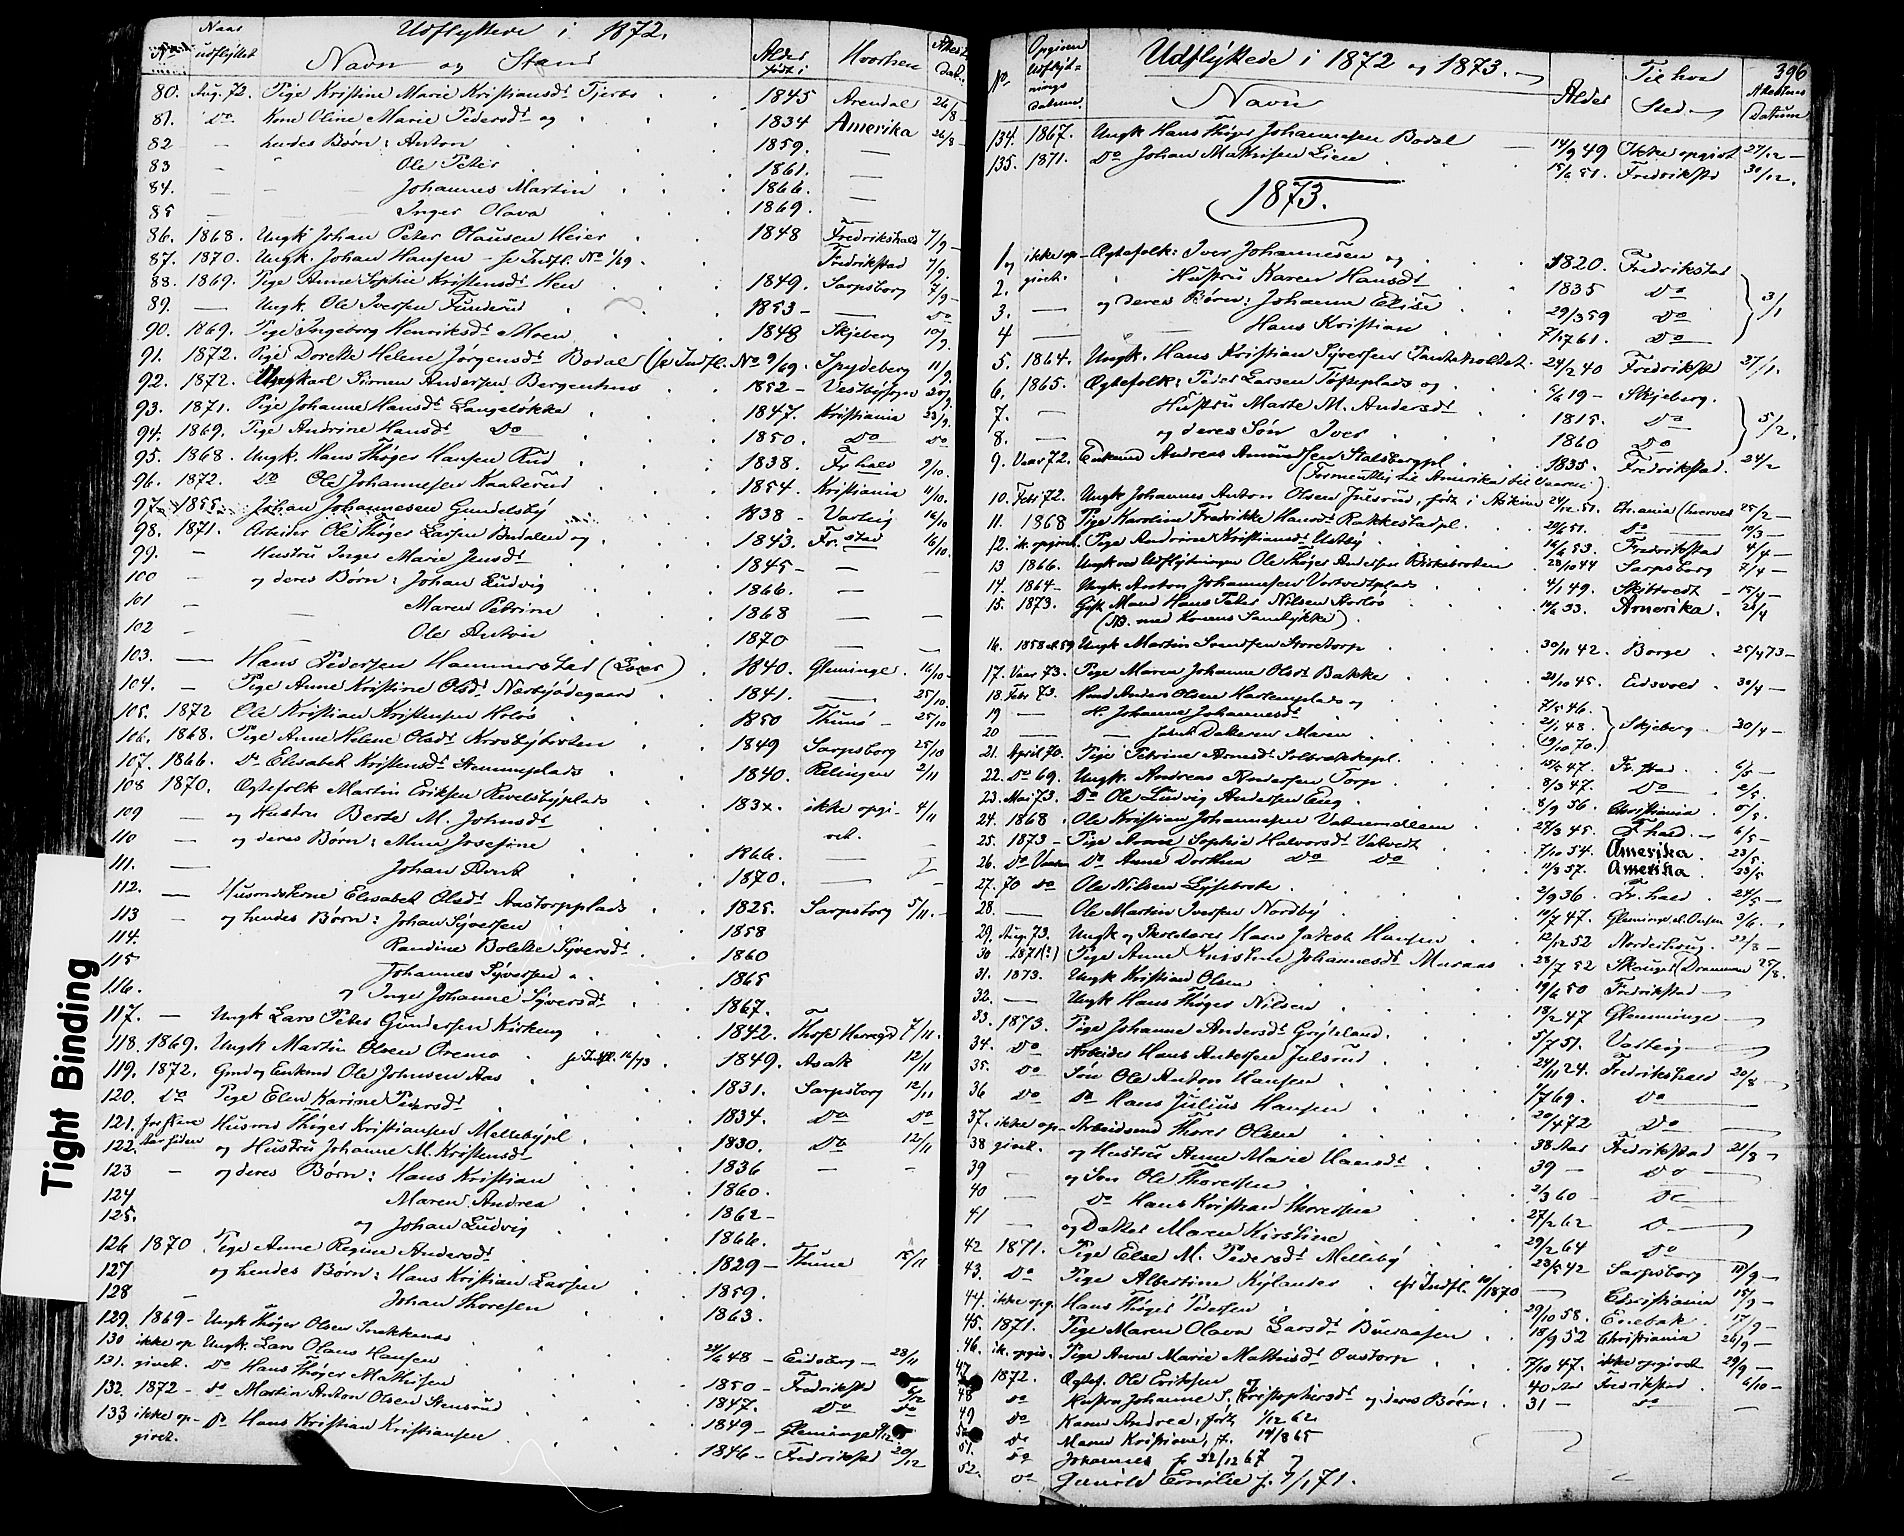 Udflyttede i 1872.
No. Naar udflyttet Navn og Stand Alder født i Hvorhen Attest Dat.
80. Aug. 72. Pige Kristine Marie Kristiansdt Fjerbo 1845 Arendal 26/8
81. Do Kone Oline Marie Pedersdt og 1834 Amerika 26/8
82 — hendes Børn: Anton 1859. —
83 - Ole Peter 1861. —
84. - Johannes Martin 1866. —
85 — Inger Olava 1869. —
86. 1868. Ungk Johan Peter Olausen Heier 1848 Fredrikshald 7/9 —
87. 1870. Ungk. Johan Hansen - se Indfl. No 1/69. Fredrikstad 7/9.
88. 1869. Pige Anne Sophie Kristensdt Hen 1849. Sarpsborg 7/9 —
89. — Ungk. Ole Iversen Funderud 1853 — — Do
90. 1869. Pige Ingeborg Henriksdt Moen 1848 Skjeberg 10/9.
91. 1872. Pige Dorette Helene Jørgensdt Bodal (se Indfl. No 9/69. Spydeberg 11/9
92. 1872. Ungkarl Simen Andersen Bergenhus 1852 — Vestby 20/9
93. 1871. Pige Johanne Hansdt Langeløkke 1847. Kristiania 23/9.
94. 1869. Pige Andrine Hansdt Do 1850. Do Do
95. 1868. Ungk. Hans Thøger Hansen Rud 1838. Fr.hald 9/10.
96. 1872. Do Ole Johannesen Kaaterud 1854. Kristiania 11/10.
97. 1855. Johan Johannesen Gundelsby 1838 — Varteig 16/10
98. 1871. Arbeider Ole Thøger Larsen Budalen og 1843. Fr. stad 16/10.
99. — Hustru Inger Marie Jensdt 1845 — — —
100 — og deres Børn: Johan Ludvig 1866. —
101 — — Maren Petrine 1868 — —
102 — Ole Anton 1870 — —
103. — Hans Pedersen Hammerstad 1840. Gleminge. 16/10 —
104. — Pige Anne Kristine Olsdt Nerbyødegaard 1841. — 25/10.
105. 1872 Ole Kristian Kristensen Holøs 1850 Thunø — 25/10
106. 1868. Pige Anne Helene Olsdt Krosbybraaten 1849 Sarpsborg 25/10
107. 1866. Do Elisabet Kristensdt Hemmeplads 1840. Relingen 2/11
108 1870. Ægtefolk Martin Eriksen Revelsbyplads 183x. ikke opgi- 4/11
109 — og Hustru Berte M. Johnsdt vet.
110 — og deres Børn: Mina Josefine 1866. —
111. — Johan Bernt 1870. —
112. — Husmdskone Elisabet Olsdt Aastorpplads 1825. Sarpsborg 5/11. —
113 — og hendes Børn: Johan Syversen 1858
114. Randine Bolette Syversdt 1860
115 Johannes Syversen 1865
116. og Inger Johanne Syversdt 1867.
117. — Ungk Lars Peter Gundersen Kirkeng 1842. Those Herregd 7/11.
118. 1869. Ungk Martin Olsen Oremo se Indfl. 16/73. 1849. Asak 12/11
119. 1872. Gmd og Enkmd Ole Johnsen Aas 1831. Sarpsborg 12/11
120. Do Pige Elen Karine Pedersdt 1834. Do Do
121. for flere Husmd Thøger Kristiansen Mellebypl. 1830. Do 12/11
122. Aar siden og Hustru Johanne M. Kristensdt 1836 — —
123 — og deres Børn: Hans Kristian 1860.
124 Maren Andrea 1862 —
125. og Johan Ludvig 1866.
126 1870 Pige Anne Regine Andersdt 1829 — Thune 15/11
127 og hendes Børn: Hans Kristian Larsen 1859.
128 — Johan Thoresen 1863.
129. 1869 — Ungk Thøger Olsen Snekkenes
130 ikke op Ungk. Lars Olaus Hansen 48 — Eidsberg — 28/11
131. givet. Do Hans Thøger Mathisen 1850 — Fredrikstd
132. 1872 — Do Martin Anton Olsen Stensrud 1847. Do Do
133 ikke op- Do Hans Kristian Kristiansen 1849 — Gleminge
givet. 1846 — Fredrikstd 20/12
Tight Binding
396
Udflyttede i 1872 og 1873. —
No. Opgiven Udflytnings datum. Navn Alder Til hvad Sted. Attestens Datum
134. 1867. Ungk Hans Thøger Johannesen Bodal — 14/9 49 Ikke opgivet 27/12 —
135. 1871. Do Johan Mathisen Lien 15/6 51. Fredrikstd 30/12.
1873.
1 og ikke op- Ægtefolk: Iver Johannesen og 1820. Fredrikstad
2. givet. Hustru Karen Hansdt 1835 Do
3. — og deres Børn: Johanne Elise 29/3 59 Do 3/1
4 — — Hans Kristian 7/1 61. Do
5. 1864. Ungk. Hans Kristian Syversen Tantaholtet 24/2 40 Fredrikstd 27/1.
6. 1865. Ægtefolk: Peder Larsen Tofteplads og 6/6 19 — Skjeberg.
7. — Hustru Marte M. Andersdt 1815. Do 5/2.
8. — og deres Søn Iver 1860 Do
9. Vaar 72. Enkemd Andreas Amundsen Stalsbergpl. 1835. Fredrikstad. 24/2
(Formentlig til Amerika til Vaaren)
10. Febr 72. Ungk Johannes Anton Olsen Julsrud, født i Askim 24/12 51. Chania (hverved 25/2 —
11. 1868 Pige Karoline Fredrikke Hansdt Rakkestadpl. 29/6 51. Do 10/3 —
12. ik. opgivet. Pige Andrine Kristiansdt Ustby 14/6 53. Fredrikstad 4/4 —
13 1866. Ungk ved Udflytningen Ole Thøger Andersen Birkebraaten 28/10 44 Sarpsborg 7/4 —
14. 1864 — Ungk Anton Johannesen Vortvedtplads 4/1 49. Skiptvedt — 15/4 —
15. 1873. Gift Mand Hans Peter Nilsen Storløs 14/6 33. Amerika. 23/4
(NB. med Konens Samtykke).
16. 1858 el. 59 Ungk Martin Svendsen Storetorp 30/11 42. Borge. 25/4 73 —
17. Vaar 73. Pige Maren Johanne Olsdt Bakke 21/10 45. Eidsvold. 30/4 —
18. Febr 73. Mand Anders Olsen Harkemplads og 7/5 46.
19 — H. Johanne Johannesdt 21/1 48. Skjeberg. 30/4 —
20 — — Maren 19/10 70.
21. April 70. Pige Petrine Arnesdt Solbrækkepl. 15/2 47. Fr. stad. 6/5 —
22. Do 69. Ungk. Andreas Andersen Torp 8/3 47. Do 2/5.
23. Mai 73. Do Ole Ludvig Andersen Eng 8/9 56. Christiania. 5/5.
24. 1868. Ole Kristian Johannesen Vatnemdlem 27/3 45. F. hald. — 6/5 —
25. 1873 — Pige Anne Sophie Halvorsdt Vatvedt 7/10 54. Amerika. 23/5.
26. Do Vaaren Do Anne Dorthea Do Do 11/8 57. Amerika. 23/5
27. 70 Do Ole Nilsen Lysebraate 2/9 36 Fr. hald. 24/5 —
28. — Ole Martin Iversen Nordby 14/7 47. Gleminge 3/6 —
29. Aug. 73. Ungk og Skolelærer Hans Jakob Hansen 12/12 52 Norderhoug. 22/8 —
30 1871(?) Pige Anne Kirstine Johannesdt Musaas 28/7 52 Skouger (Drammen) 25/8.
31. 1873. Ungk Kristian Olsen 19/6 50 Fredrikstad —
32. — Ungk Hans Thøger Nilsen 18/2 47 Glemminge —
33. 1873. Pige Johanne Andersdt Gryteland. 5/7 51. Varteig —
34. Do Arbeider Hans Andersen Julsrud 24/11 24. Fredrikshald 20/8.
35. Do Søn Ole Anton Hansen 1/7 69. Do
36 Do Do Hans Julius Hansen 20/4 72 Do
37. ikke op- Arbeidsmd Thore Olsen 38 Aar Fredrikstad 21/8 —
38 givet. og Hustru Anne Marie Hansdt 39 — Do —
39 og Søn Ole Thoresen 2/3 60 — Do
40 — Do Hans Kristian Thoresen 27/2 62 Do
41 — og Datter Maren Kirstine 29/2 64 Do
42 1871. Pige Else M. Pedersdt Melleby 23/5 42 Sarpsborg 11/9 —
43. Do Pige Albertine Kylander (se Indfl. 10/1870 — Christiania 15/9 —
44. ikke opg. Hans Thøger Pedersen 29/10 58. Enebak. 17/9 —
45. 1871. Pige Maren Olava Larsdt Bueraasen 18/9 52 Christiania 26/9 —
46. ik. opgiv. Pige Anne Marie Mathisdt Oustorp 7/10 47. ikke opgivet 29/9 —
47 1872. Ægtef. Ole Eriksen og 40 Aar Fredrikstad. 6/10 —
48 Do Hustru Johanne S. Kristophersdt og deres Børn: 31 — Do —
49 Do Karen Andrea, født 1/12 62
50 Do Maren Kristiane, f. 14/8 65
51. Do Johannes f. 22/12 67
52. Do Gunild Emilie f. 7/1 71.